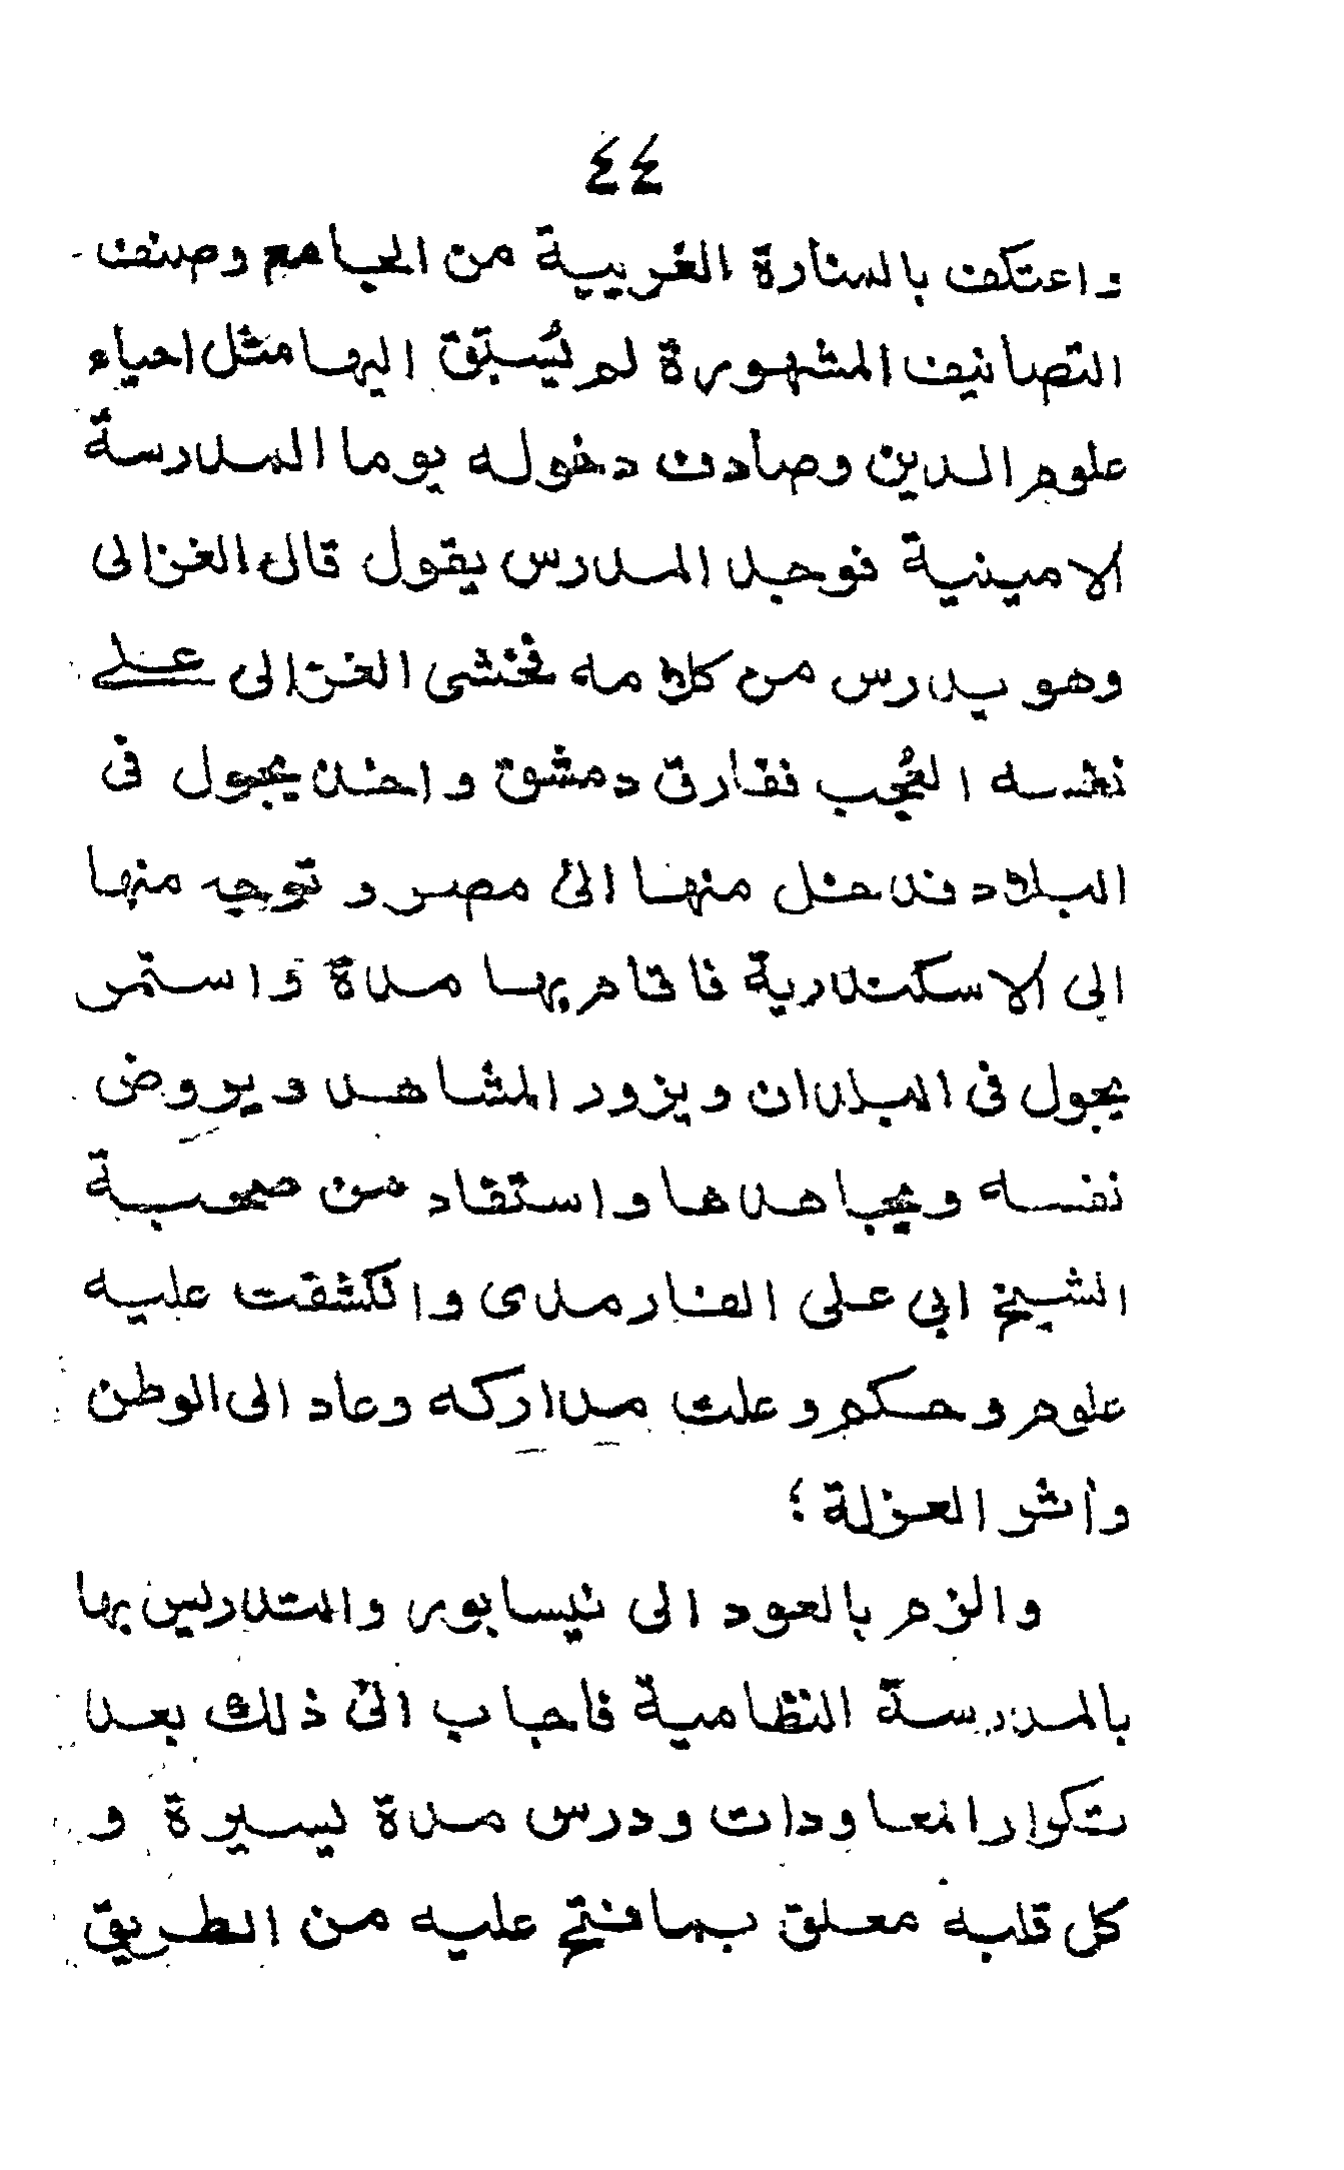 ٤٤
واعتكف بالمنارة الغربية من الجامع وصنف
التصانيف المشهورة لم يُسبق اليها مثل احياء
علوم الدين وصادف دخوله يوما المدرسة
الامينية فوجد المدرس يقول قال الغزالى
وهو يدرس من كلامه فخشى الغزالى على
نفسه العُجب ففارق دمشق واخذ يجول فى
البلاد فدخل منها الى مصر وتوجه منها
الى الاسكندرية فاقام بها مدة واستمر
يجول فى البلدان ويزور المشاهد ويروض
نفسه ويجاهدها واستفاد من صحبة
الشيخ ابى على الفارمدى وانكشفت عليه
علوم وحكم وعلت مداركه وعاد الى الوطن
وأثر العزلة ؛
والزم بالعود الى نيسابور والتدريس بها
بالمدرسة النظامية فاجاب الى ذلك بعد
تكرار المعاودات ودرس مدة يسيرة و
كل قلبه معلق بما فتح عليه من الطريق